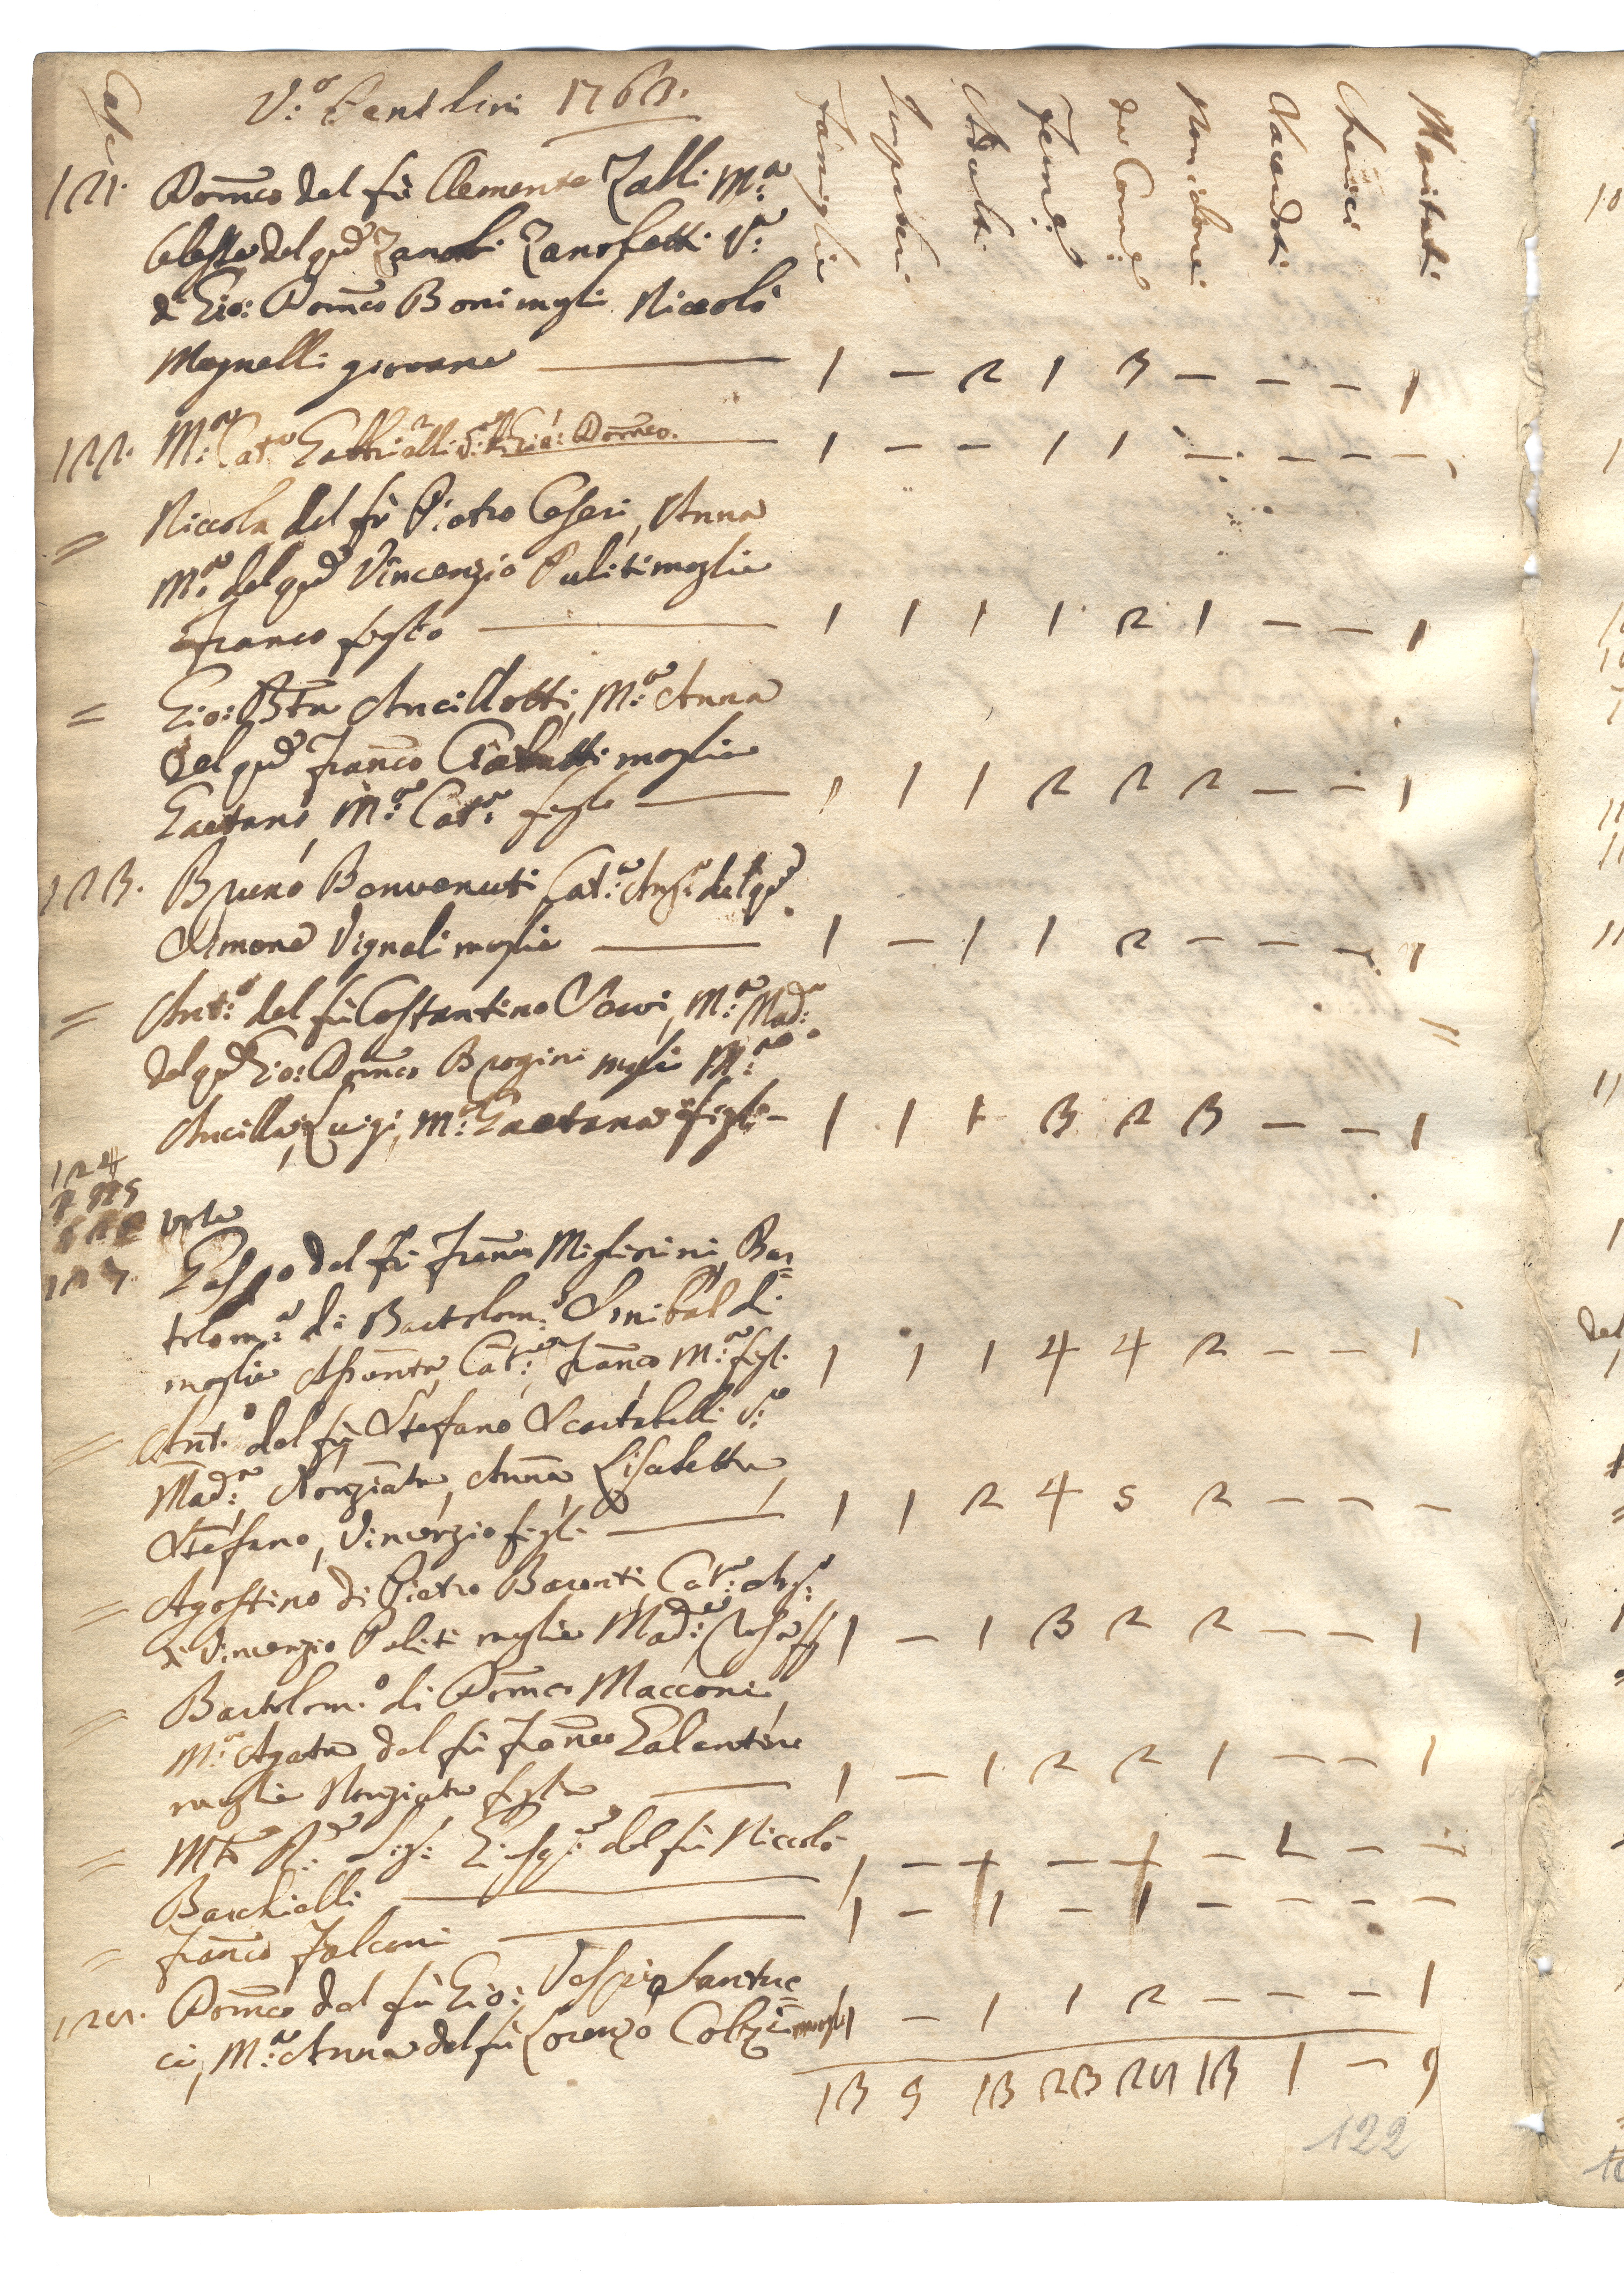 Case
V.o Pentolini 1763.
Famiglie Impuberi Adulti Femine da Comne Non idonei Sacerdoti Cherici Maritati
121. Domco del fù Clemente Galli M.a
Celeste del qd Zanobi Zanobetti V.a
di Gio: Domco Boni mogli Niccolò
Magnelli giovane — 1 - 2 1 3 - - - 1
122. M.a Cat.a Gabbrielli V.a di Gio: Domco. 1 - - 1 1 - - - -
= Niccola del fù Pietro Ceseri, Anna
M.a del qd Vincenzio Puliti moglie
Franco figlio — 1 1 1 1 2 1 - - 1
= Gio: Bta Ancillotti, M.a Anna
del qd Franco moglie
Gaetano, M.a Cat.a figli — 1 1 1 2 2 2 - - 1
123. Bruno Bonvenuti, Cat.a Ang.a del qd
Simone Vignali moglie — 1 - 1 1 2 - - - 1
= Ant.o del fù Costantino M.a Mad.a
del qd Gio: Domco Brogini moglie M.a
Ancilla, Luigi, M.a Gaetana figli - 1 1 1 3 2 3 - - 1
124
125
126 vote
127 Gaspo del fù Franco Migliorini, Bar=
tolom.a di Bartolom.o Sinibaldi
moglie Assunta, Cat.a, Franco, M.a figli 1 1 1 4 4 2 - - 1
= Ant.o del fù Stefano Scartabelli V.o
Mad.a, Nonziata, Anna, Lisabetta,
Stefano, Vincenzio figli — 1 1 2 4 5 2 - - -
= Agostino di Pietro Baronti, Cat.a Ang.a
di Vincenzio Puliti moglie Mad.a Rosa 1 - 1 3 2 2 - - 1
= Bartolom.o di Domco Macconi,
M.a Agata del fù Franco Galantini
moglie Nonziata figlia — 1 - 1 2 2 1 - - 1
= del fù Niccolò
Barchielli — 1 - 1 - 1 - 1 - -
= Franco Falconi — 1 - 1 - 1 - - - -
128. Domco del fù Gio: Santuc=
ci, M.a Anna del fù Lorenzo Colzi moglie 1 - 1 1 2 - - - 1
13 5 13 23 28 13 1 - 9
122